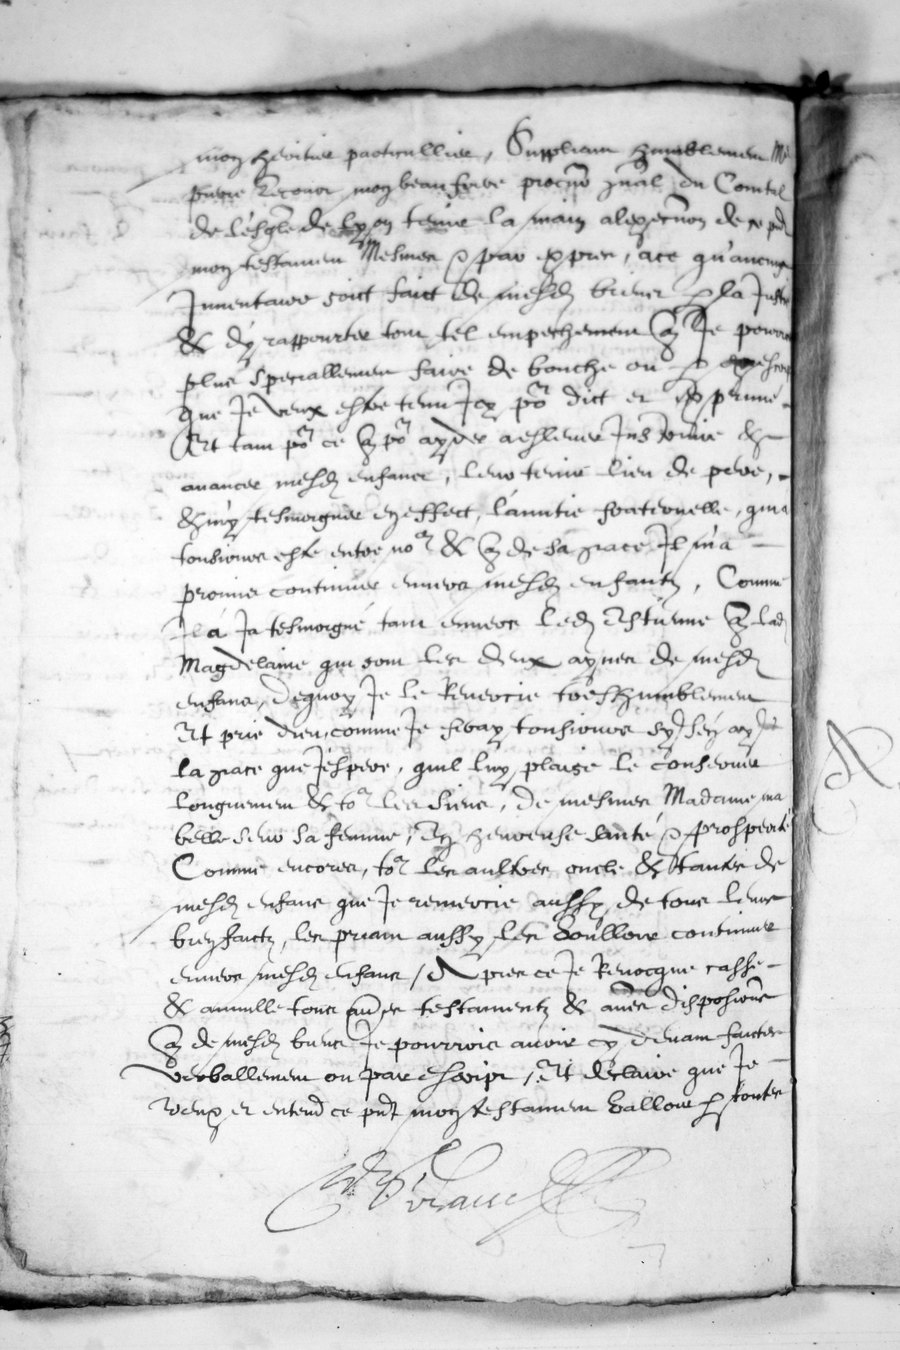 mon heritier particullier, Suppliant humblement Mr
pierre mon beau frere procur gnal du Comtal
de l'esglē de Lyon tenir la main a l'execuōn de ce pnt
mon testament Mesmes & par expres, a ce qu'aucung
Inventaire soict faict de mesd biens p la Justice
& d'y rapporter tout tel empechement q Je pourrois
plus speciallement faire de bouche ou p
que Je veux estre tenu Icy por dict et exprimé
Et tant por ce q por ayder a eslever Instruire &
avancer mesd enfans, leur tenir lieu de pere,
& m'y tesmoigner en effect, l'amitie fraternelle, qui a
tousiours esté entre nos & q de sa grace Il m'a
promis continuer envers mesd enfantz, Comme
Il a Ja tesmoigné tant envers led Estienne q lad
Magdelaine qui sont les deux aynes de mesd
enfans, Dequoy Je le Remercie tres humblement
Et prie dieu, comme Je feray tousiours sy J'en ay
la grace que J'espere, quil luy plaise le conserver
longuement & tos les siens, De mesmes Madame ma
belle seur sa femme, En heureuse santé & prosperité
Comme encores, tos les aultres oncle & tantes de
mesd enfans que Je remercie aussy, de tous leurs
bien faictz, les priant aussy, les voulloir continuer
envers mesd enfans, Apres ce Je Revocque casse
& annulle tous aures testamentz & aures disposiōns
q de mesd biens Je pourrois avoir cy devant faictes
verballement ou par escript, Et declaire que Je
veux et entend ce pnt mon testament valloir p toutes